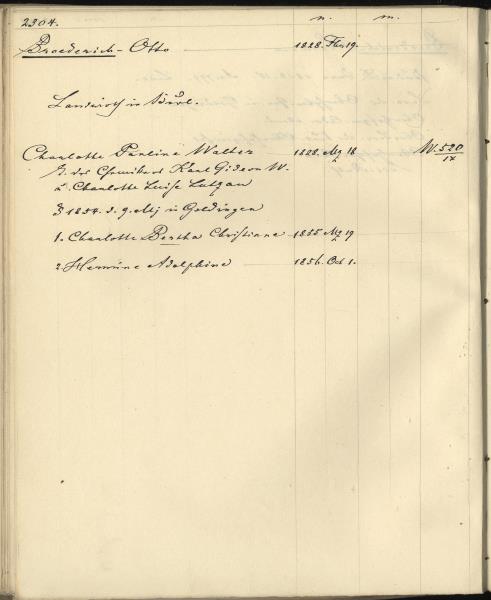 2304.
n. m.
Broederich - Otto 1828. Fbr 19.
Landwirth in Kurl.
Charlotte Pauline Walter 1828. Mz 18 W. 520/IX
T. des Karl Gideon W.
u Charlotte Luise Lutzau
1854. d. 9. Mz in Goldingen
1. Charlotte Bertha Christiane 1855 Mz 19
2. Hermine Adolphine 1856. Oct 1.